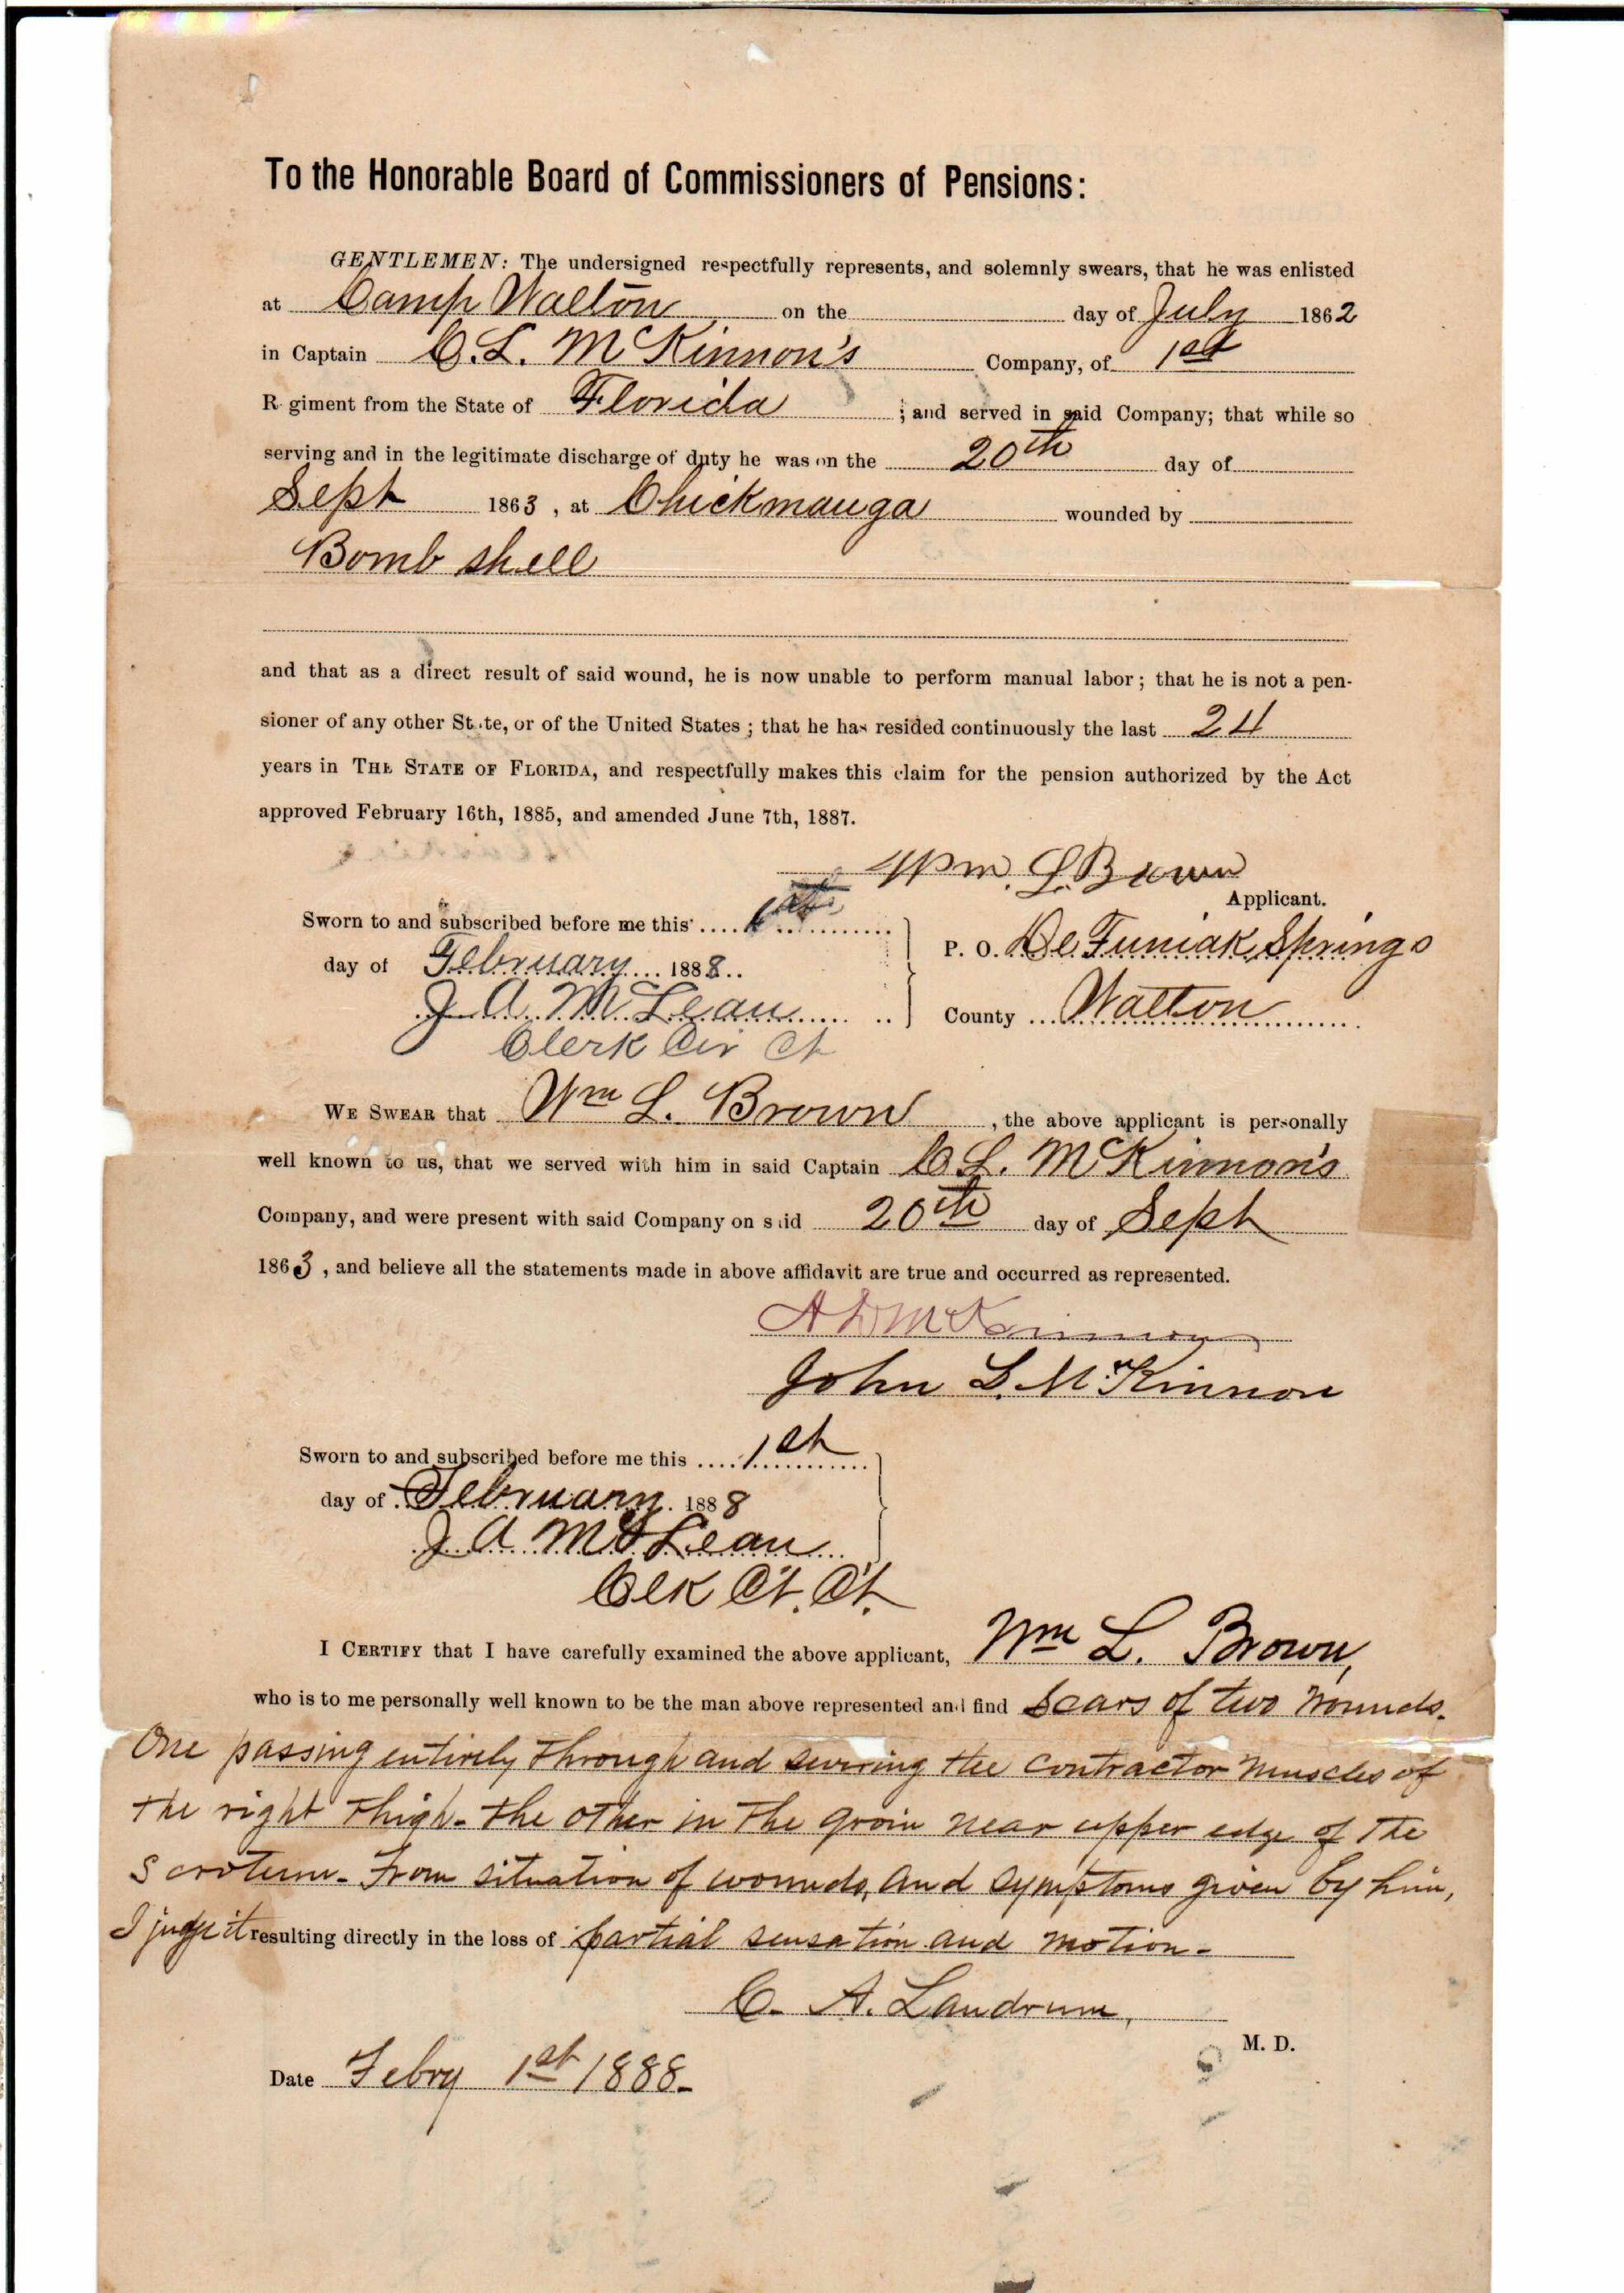 To the Honorable Board of Commissioners of Pensions:
GENTLEMEN: The undersigned respectfully represents, and solemnly swears, that he was enlisted
at Camp Walton on the day of July 1862
in Captain C. L. McKinnon's Company, of 1st
R giment from the State of Florida ; and served in said Company; that while so
serving and in the legitimate discharge of duty he was on the 20th day of
Sept 1863, at Chickmauga wounded by
Bomb shell
and that as a direct result of said wound, he is now unable to perform manual labor; that he is not a pen-
sioner of any other St te, or of the United States; that he has resided continuously the last 24
years in THE STATE OF FLORIDA, and respectfully makes this claim for the pension authorized by the Act
approved February 16th, 1885, and amended June 7th, 1887.
Wm. L. Brown
Applicant.
Sworn to and subscribed before me this
P. O. De Funiak Springs
day of February 1888
J. A. McLean
County Walton
Clerk Cir Ct
WE SWEAR that Wm L. Brown, the above applicant is personally
well known to us, that we served with him in said Captain C. L. McKinnon's
Company, and were present with said Company on s id 20th day of Sept
1863, and believe all the statements made in above affidavit are true and occurred as represented.
A D McKinnon
John L. McKinnon
Sworn to and subscribed before me this 1st
day of February 1888
J. A. McLean
Clk Ct. Ct.
I CERTIFY that I have carefully examined the above applicant, Wm L. Brown,
who is to me personally well known to be the man above represented and find Scars of two wounds.
One passing entirely through and severing the contractor muscles of
the right thigh - the other in the groin near upper edge of the
Scrotum - From situation of wounds, and symptoms given by him,
I judge it resulting directly in the loss of partial sensation and motion -
C. A. Landrum,
M. D.
Date Febry 1st 1888 -